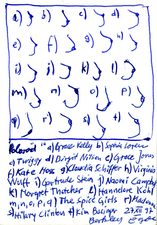 a) b) c) d)
e) f) g) h)
i) j) k) l)
m) n) o) p)
q) r) s) t)
a) Grace Kelly b) Sophia Loren
c) Twiggy d) Birgit Nilsen e) Grace Jones
f) Kate Moss g) Claudia Schiffer h) Virginia
Wolf i) Gertrude Stein j) Naomi Campbell
k) Margret Thatcher l) Hannelore Kohl
m, n, o, p, q) The Spice Girls r) Madonna
s) Hilary Clinton t) Kim Basinger
Berkeley